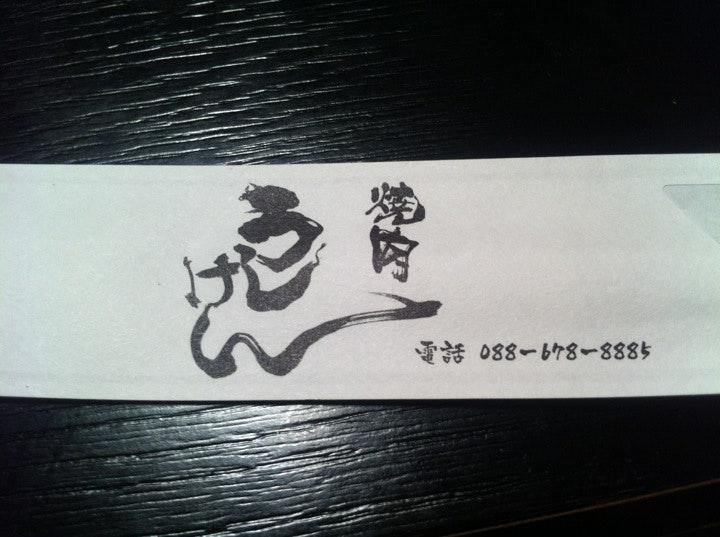 焼肉
うしげん
電話 088-678-8885